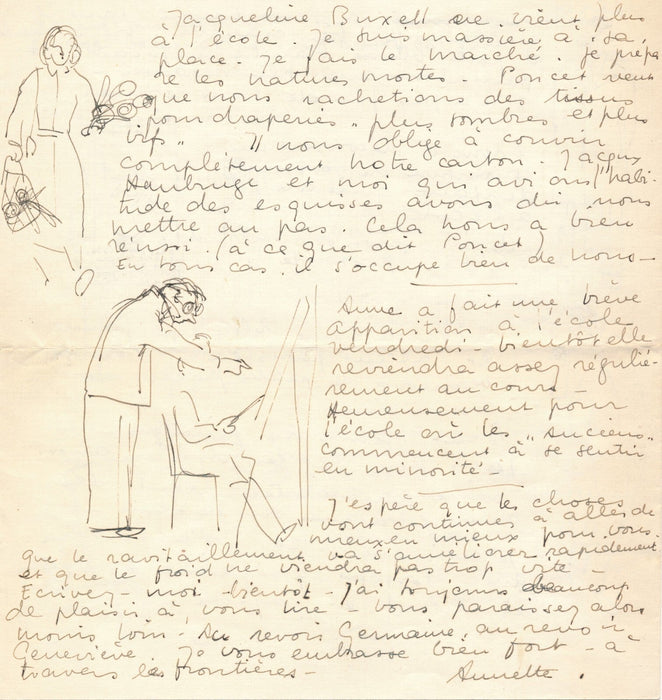 Jacqueline Buxell ne vient plus
à l'école. Je suis massière à sa
place. Je fais le marché. je prépa
re les natures mortes. Poncet veut
que nous rachetions des tissus
pour draperies „ plus sombres et plus
vifs „ Il nous oblige à couvrir
complètement notre carton. Jacques
et moi qui avions l'habi-
tude des esquisses avons dû nous
mettre au pas. Cela nous a bien
réussi. (à ce que dit Poncet)
En tous cas il s'occupe bien de nous -
Anne a fait une brève
apparition à l'école
vendredi - bientôt elle
reviendra assez réguliè-
rement au cours -
Heureusement pour
l'école où les „ anciens „
commencent à se sentir
en minorité -
J'espère que les choses
vont continuer à aller de
mieux en mieux pour vous.
que le ravitaillement va s'améliorer rapidement
et que le froid ne viendra pas trop vite -
Ecrivez-moi bientôt - j'ai toujours beaucoup
de plaisir à vous lire - vous paraissez alors
moins loin - Au revoir Germaine, au revoir
Geneviève. Je vous embrasse bien fort - à
travers les frontières -
Annette.